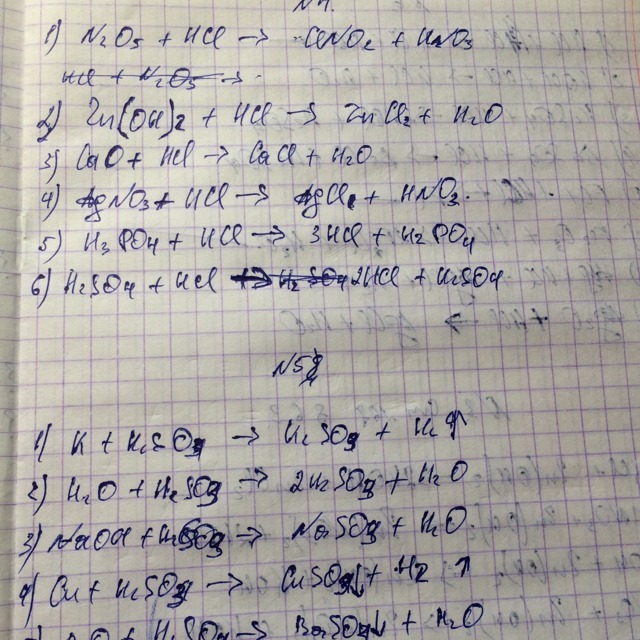 N4.
1) N2O5 + HCl → ClNO2 + HNO3
HCl + N2O5 →
2) Zn(OH)2 + HCl → ZnCl2 + H2O
3) CaO + HCl → CaCl + H2O
4) AgNO3 + HCl → AgCl + HNO3.
5) H3PO4 + HCl → 3HCl + H2PO4
6) H2SO4 + HCl → H2SO4 2HCl + H2SO4
N5
1) K + H2SO3 → H2SO3 + H2↑
2) H2O + H2SO3 → 2H2SO3 + H2O
3) NaOH + H2SO3 → NaSO3 + H2O.
4) Cu + H2SO3 → CuSO3↓ + H2 ↑
O + H2SO → BaSO↓ + H2O